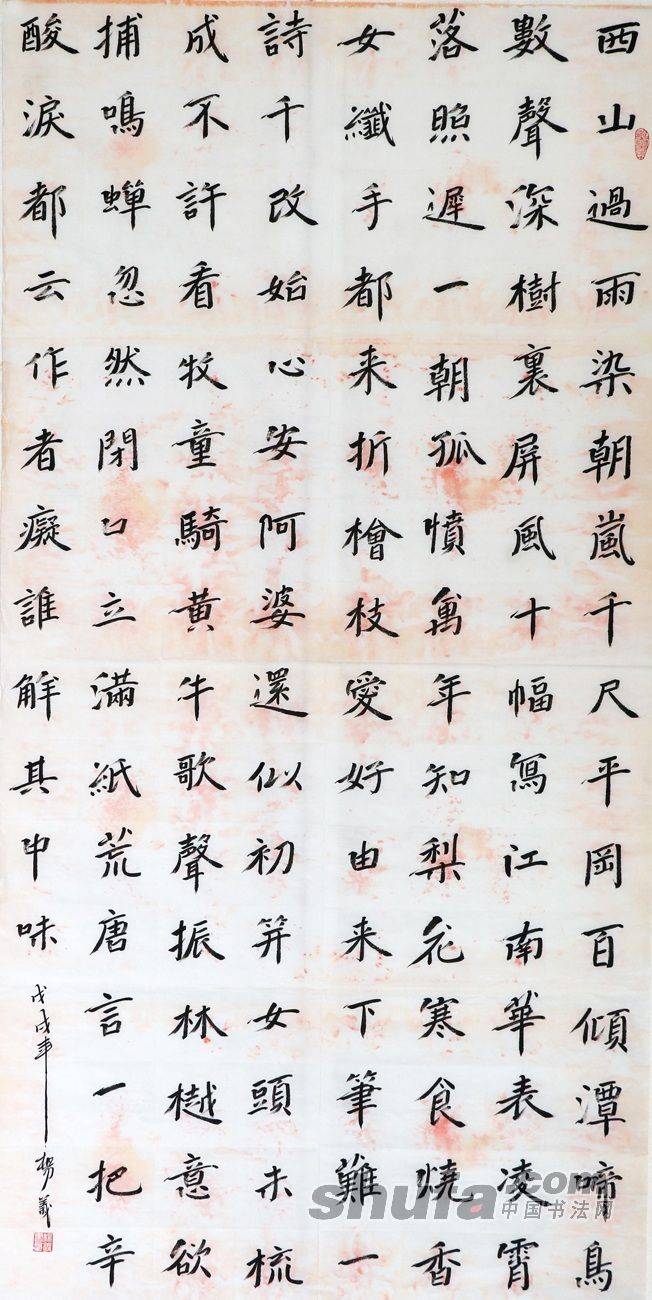 西山過雨染朝嵐千尺平岡百傾潭啼鳥
數聲深樹裏屏風十幅寫江南華表凌霄
落照遲一朝孤憤萬年知梨花寒食燒香
女纖手都来折檜枝愛好由来下筆難一
詩千改始心安阿婆還似初笄女頭未梳
成不許看牧童騎黄牛歌聲振林樾意欲
捕鳴蟬忽然閉口立滿紙荒唐言一把辛
酸淚都云作者癡誰解其中味
戊戌年楊義
shufa.com
中国书法网